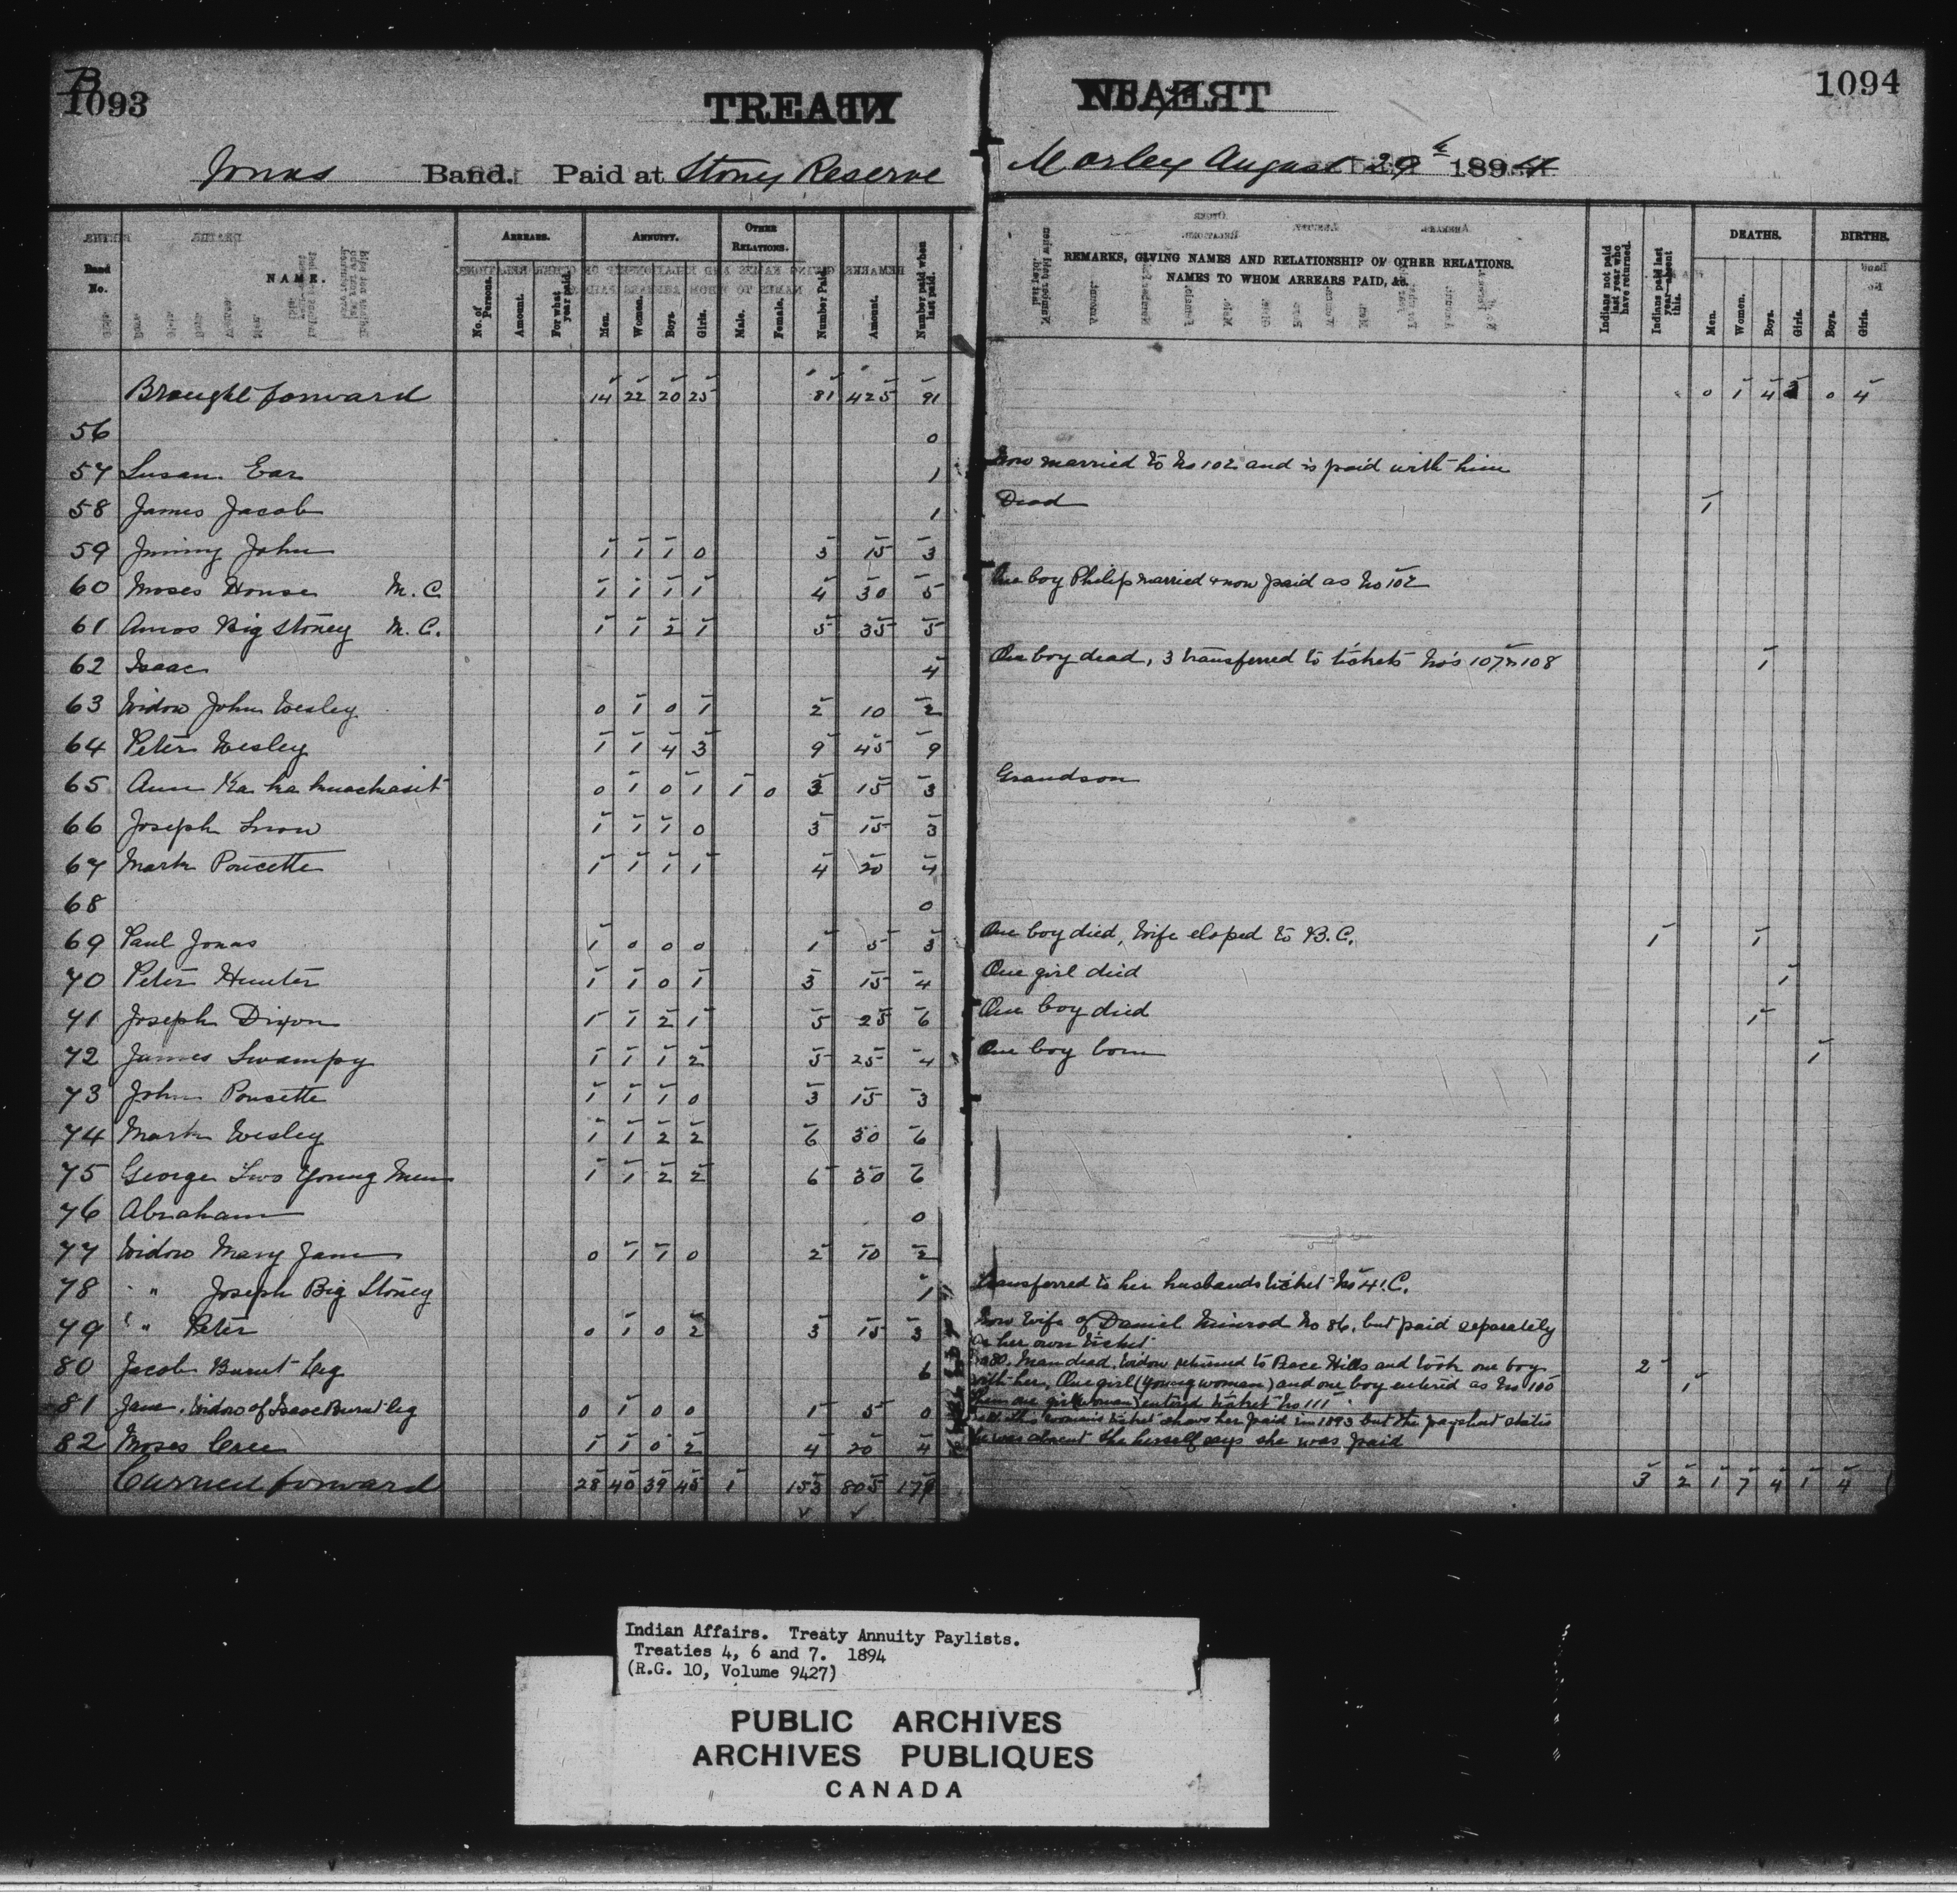 B
1093
TREATY
Jonas Band. Paid at Stoney Reserve
Band No.
NAME.
ARREARS.
No. of Persons.
Amount.
For what year paid.
ANNUITY.
Men.
Women.
Boys.
Girls.
OTHER RELATIONS.
Male.
Female.
Number Paid.
Amount.
Number paid when last paid.
Brought forward 14 22 20 25 81 425 91
56 0
57 Susan Ear 1
58 James Jacob 1
59 Jimmy John 1 1 1 0 3 15 3
60 Moses House M.C. 1 1 1 1 4 30 5
61 Amos Big Stoney M.C. 1 1 2 1 5 35 5
62 Isaac 4
63 Widow John Wesley 0 1 0 1 2 10 2
64 Peter Wesley 1 1 4 3 9 45 9
65 Ann Ka ka 0 1 0 1 1 0 3 15 3
66 Joseph Snow 1 1 1 0 3 15 3
67 Mark Poucette 1 1 1 1 4 20 4
68 0
69 Paul Jonas 1 0 0 0 1 5 3
70 Peter Hunter 1 1 0 1 3 15 4
71 Joseph Dixon 1 1 2 1 5 25 6
72 James Swampy 1 1 1 2 5 25 4
73 John Poucette 1 1 1 0 3 15 3
74 Mark Wesley 1 1 2 2 6 30 6
75 George Two Young Men 1 1 2 2 6 30 6
76 Abraham 0
77 Widow Mary Jane 0 1 1 0 2 10 2
78 " " Joseph Big Stoney 1
79 " " Peter 0 1 0 2 3 15 3
80 Jacob Burnt Leg 6
81 Jane, Widow of Isaac Burnt leg 0 1 0 0 1 5 0
82 Moses Cree 1 1 0 2 4 20 4
Carried forward 28 40 39 45 1 153 805
1094
TREATY
Morley August 29th 1894
REMARKS, GIVING NAMES AND RELATIONSHIP OF OTHER RELATIONS.
NAMES TO WHOM ARREARS PAID, &c.
Indians not paid last year who have returned.
Indians paid last year—absent this.
DEATHS.
Men.
Women.
Boys.
Girls.
BIRTHS.
Boys.
Girls.
0 1 4 0 4
Now married to No 102 and is paid with him
Dead 1
One boy Philip married & now paid as No 102
One boy dead, 3 transferred to tickets No's 107 & 108 1
Grandson
One boy died, Wife eloped to B.C. 1 1
One girl died 1
One boy died 1
One boy born 1
Transferred to her husbands ticket No 41.C.
Now Wife of Daniel Nimrod No 86, but paid separately
on her own ticket
No 80. Man dead, Widow returned to Peace Hills and took one boy 2
with her, One girl (young woman) and one boy entered as No 100 1
entered ticket No 111
this woman's ticket shows her paid in 1893 but the paysheet states
was absent she herself says she was paid
3 2 1 7 4 1 4
Indian Affairs. Treaty Annuity Paylists.
Treaties 4, 6 and 7. 1894
(R.G. 10, Volume 9427)
PUBLIC ARCHIVES
ARCHIVES PUBLIQUES
CANADA